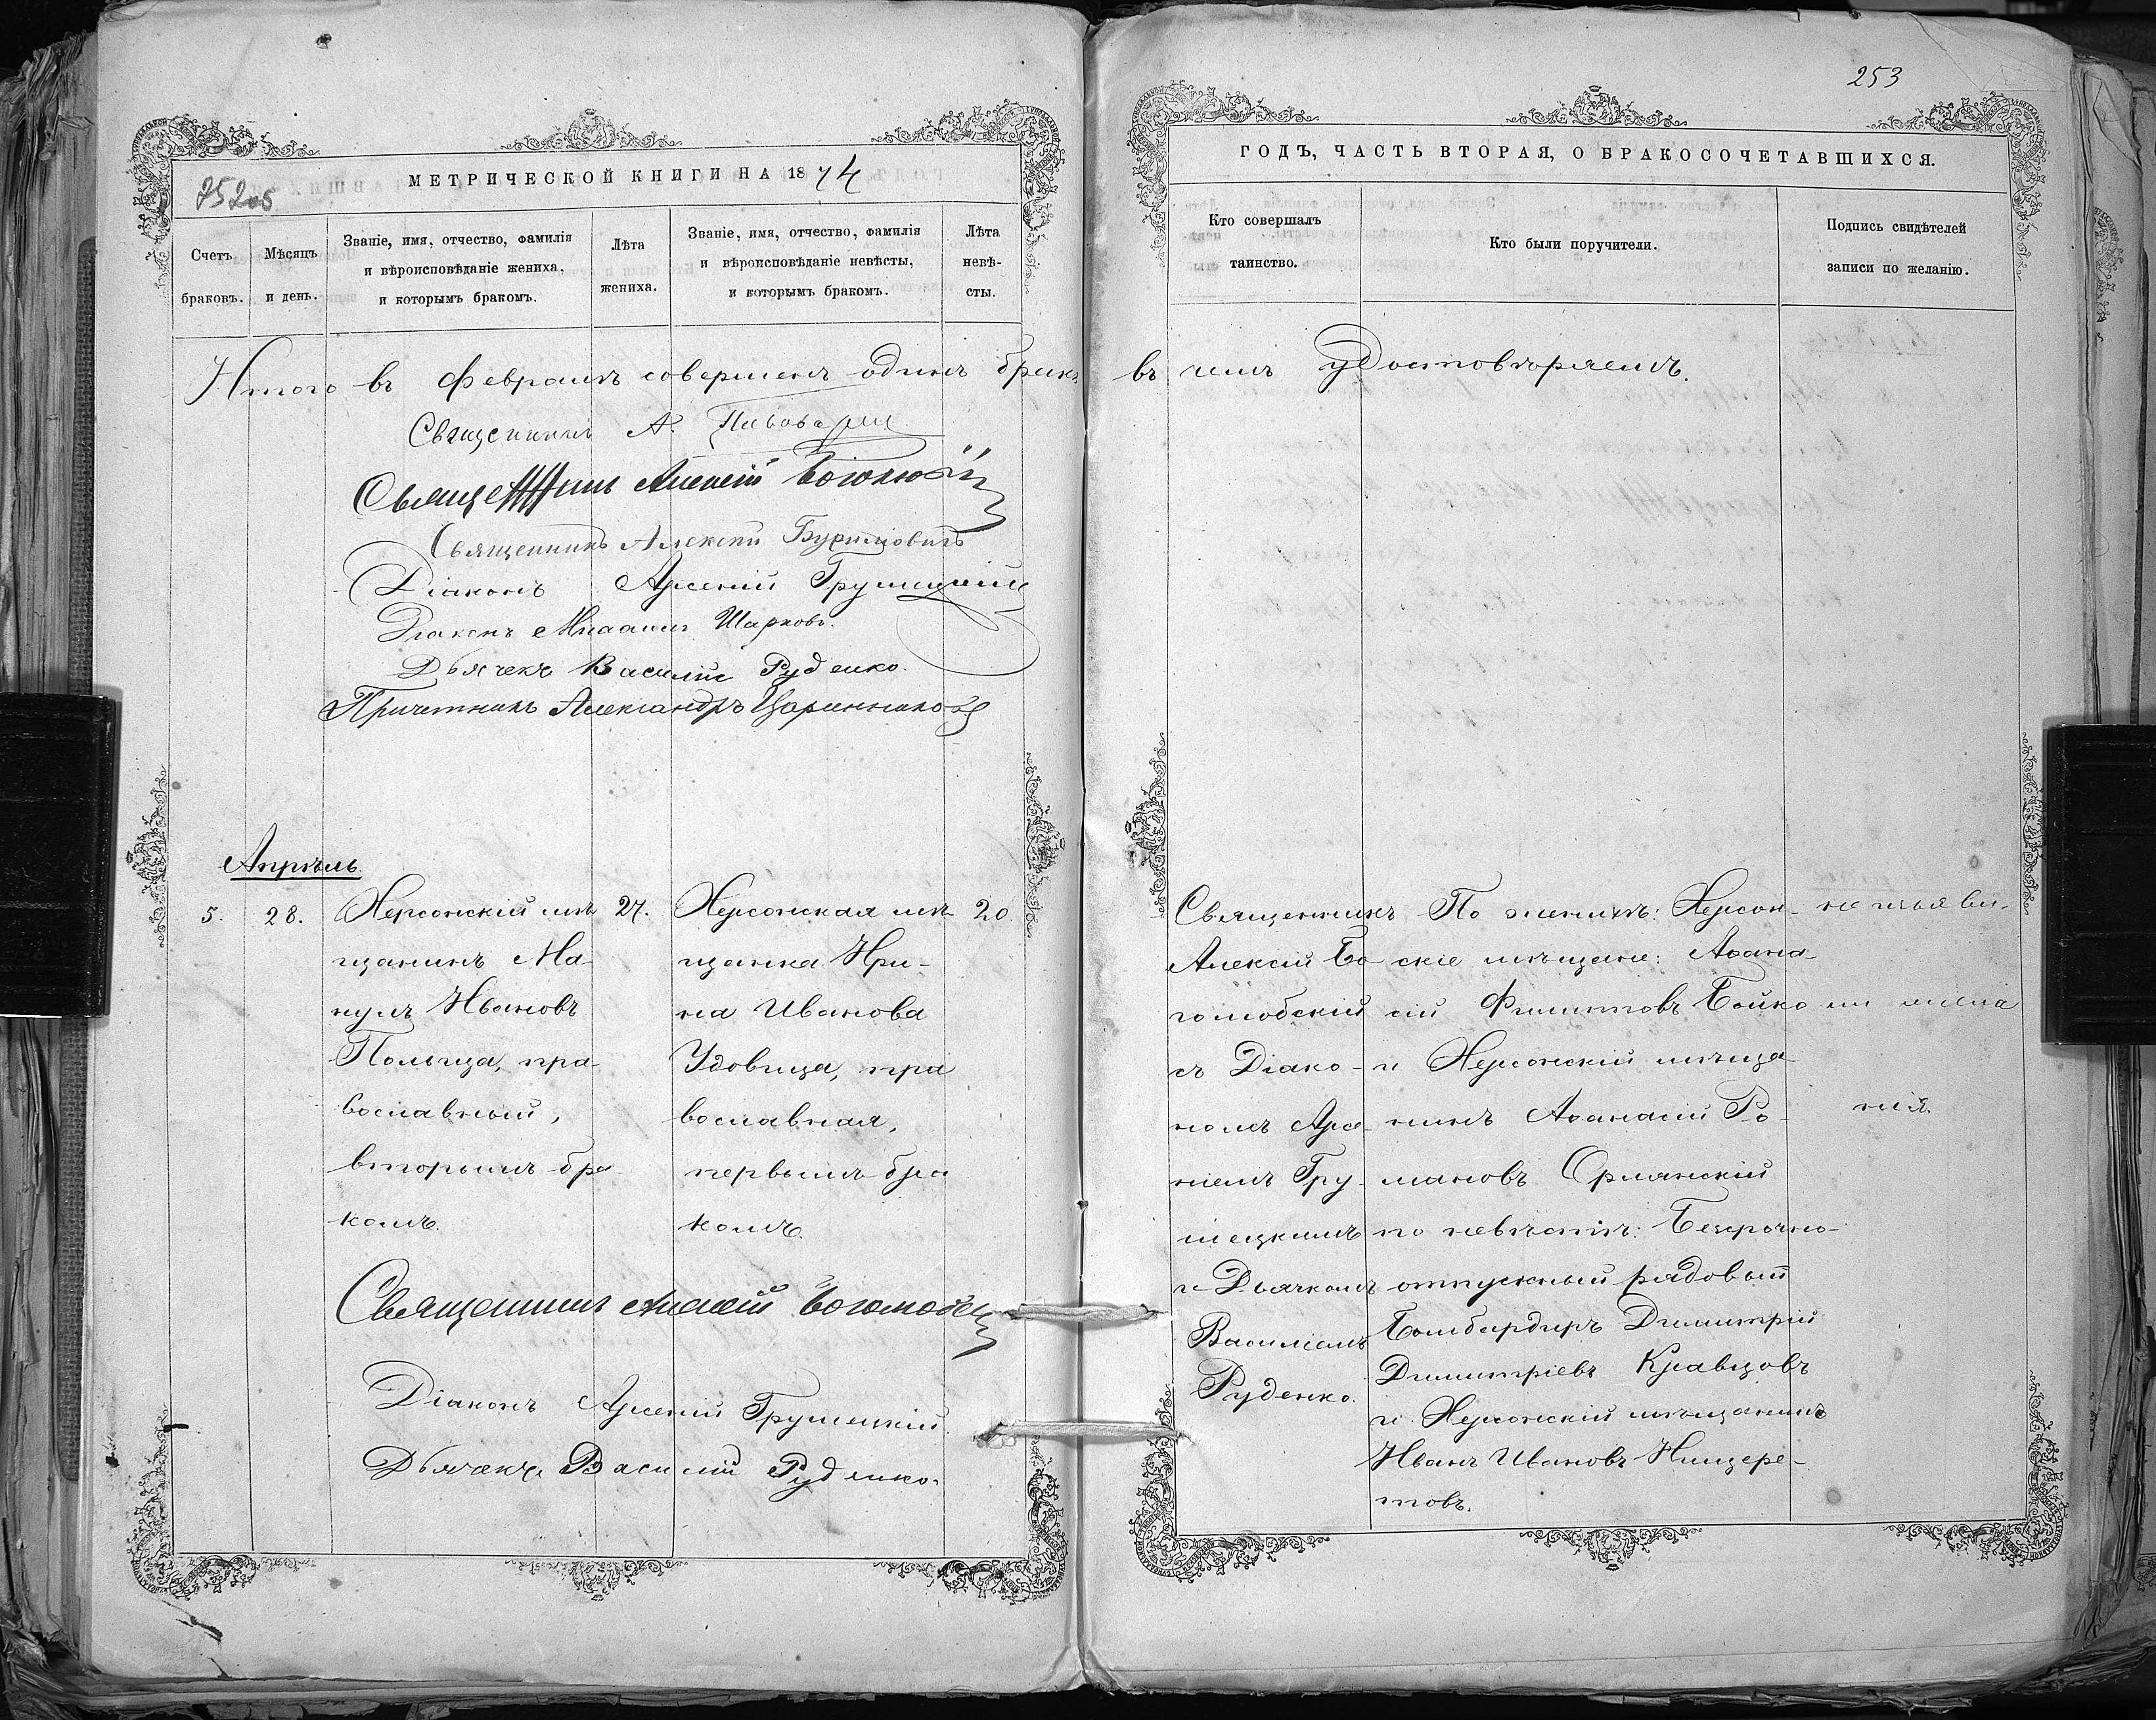 253
МЕТРИЧЕСКОЙ КНИГИ НА 1874
ГОДЪ, ЧАСТЬ ВТОРАЯ, О БРАКОСОЧЕТАВШИХСЯ.
Счетъ
браковъ.
Мѣсяцъ
и день.
Званіе, имя, отчество, фамилія
и вѣроисповѣданіе жениха,
и которымъ бракомъ.
Лѣта
жениха.
Званіе, имя, отчество, фамилія
и вѣроисповѣданіе невѣсты,
и которымъ бракомъ.
Лѣта
невѣ-
сты.
Кто совершалъ
таинство.
Кто были поручители.
Подпись свидѣтелей
записи по желанію.
Итого въ Февралѣ совершенъ одинъ бракъ
въ чемъ удостовѣряемъ.
Священникъ А.
Священникъ Алексій
Священникъ Алексій
Діаконъ Арсеній Грушецкій
Діаконъ Михаилъ Шарковъ.
Дьячекъ Василій Руденко.
Причетникъ Александръ
Апрѣль.
5.
28.
Херсонскій мѣ
щанинъ Ма-
нуилъ Ивановъ
Польща, пра-
вославный,
вторымъ бра-
комъ.
27.
Херсонская мѣ
щанка Ири-
на Иванова
Удовица, пра
вославная,
первымъ бра
комъ.
20
Священникъ
Алексій Бо
голюбскій
съ Діако-
номъ Арсе-
ніемъ Гру-
шецкимъ
и Дьячкомъ
Василіемъ
Руденко.
По женихѣ: Херсон-
скіе мѣщане: Афана-
сій Филиповъ Бойко
и Херсонскій мѣща-
нинъ Афанасій Ро-
мановъ Ормянскій
по невѣстѣ: Безсрочно-
отпускный рядовый
Бомбардиръ Димитрій
Димитріевъ Кравцовъ
и Херсонскій мѣщанинъ
Иванъ Ивановъ Нищере-
товъ.
не изъяви-
ли жела
нія.
Священникъ Алексій Боголюбск
Діаконъ Арсеній Грушецкій.
Дьячекъ Василій Руденко.